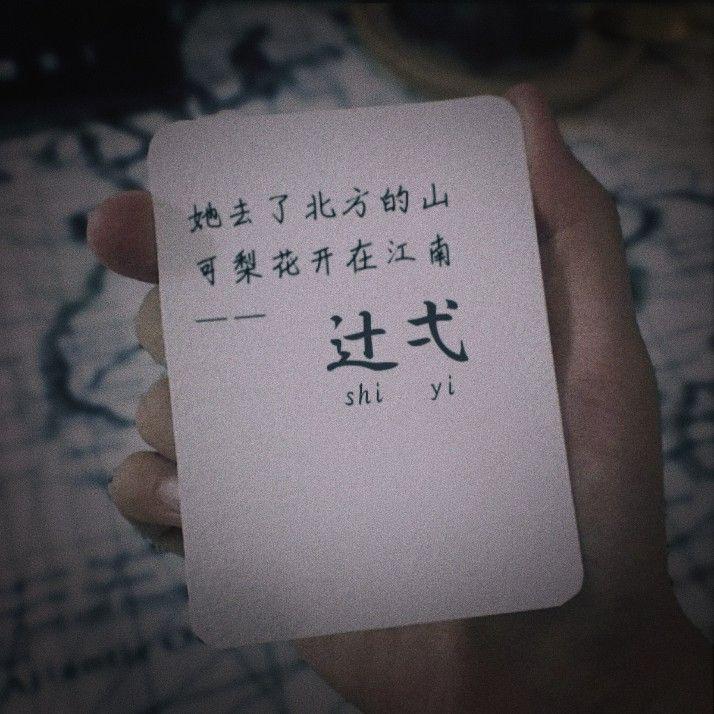 她去了北方的山
可梨花开在江南
—— 辻弌
shi yi
Atlantic